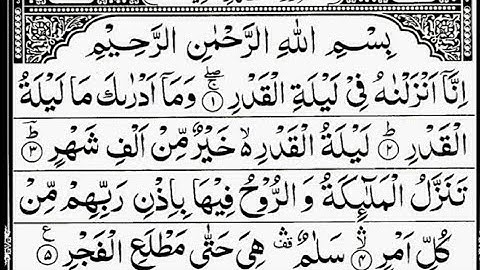 بِسْمِ اللهِ الرَّحْمٰنِ الرَّحِيْمِ
اِنَّاۤ اَنْزَلْنٰهُ فِیْ لَیْلَةِ الْقَدْرِ ۚۖ ﴿۱﴾ وَمَاۤ اَدْرٰىكَ مَا لَیْلَةُ
الْقَدْرِ ؕ ﴿۲﴾ لَیْلَةُ الْقَدْرِ ۙ۬ خَیْرٌ مِّنْ اَلْفِ شَهْرٍ ؕؔ ﴿۳﴾
تَنَزَّلُ الْمَلٰٓىِٕكَةُ وَ الرُّوْحُ فِیْهَا بِاِذْنِ رَبِّهِمْ مِّنْ
كُلِّ اَمْرٍ ۙۛ ﴿۴﴾ سَلٰمٌ ۛ۫ هِیَ حَتّٰی مَطْلَعِ الْفَجْرِ ﴿۵﴾ ع